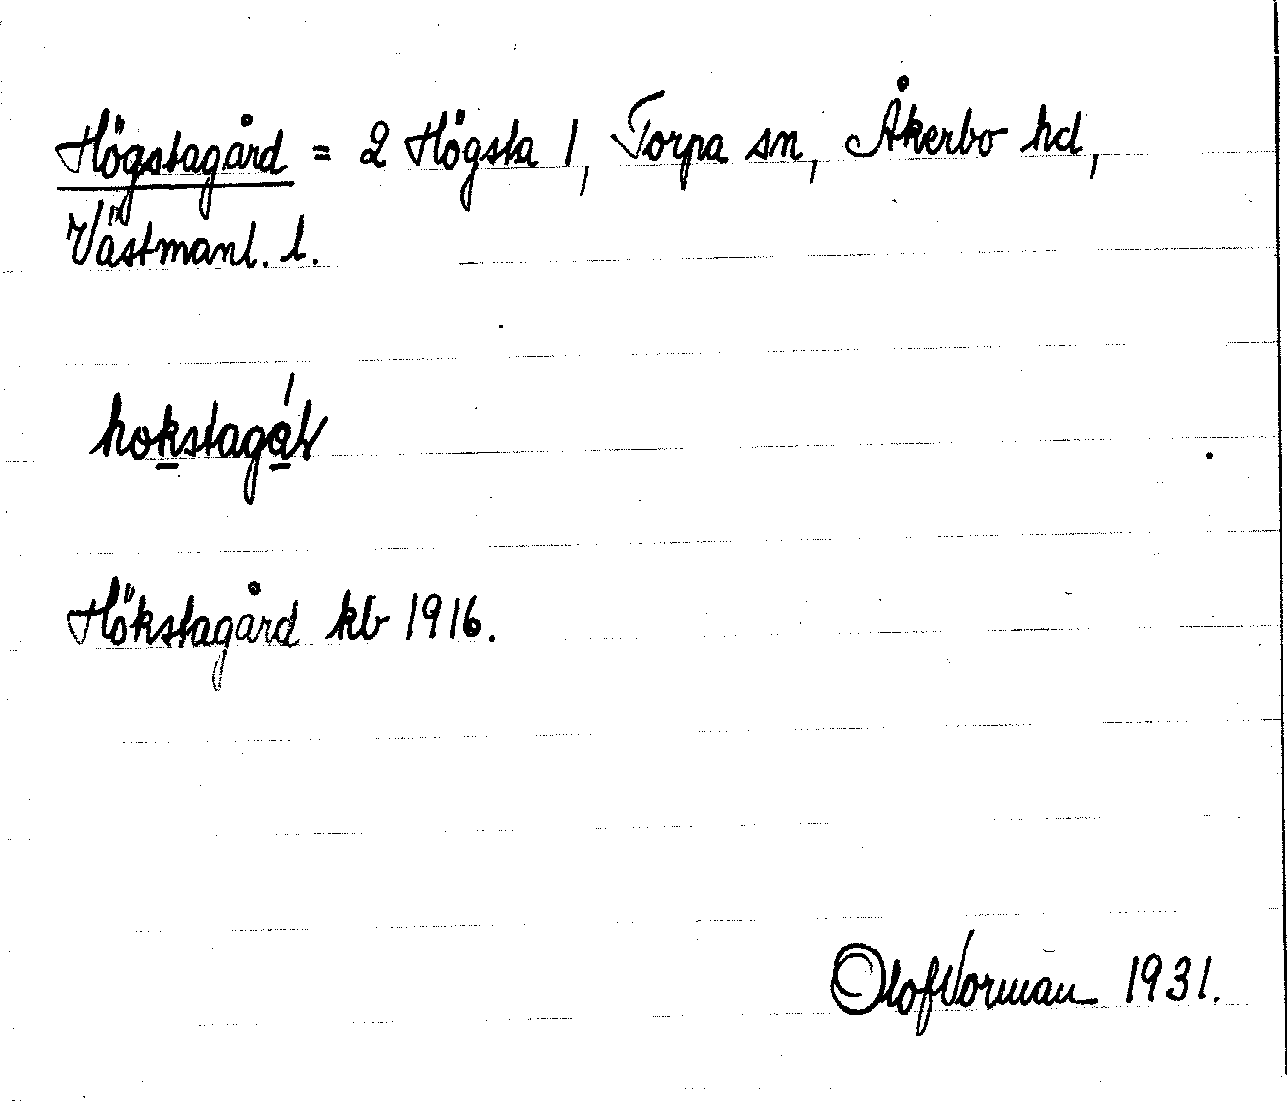 Högstagård = 2 Högsta 1, Torpa sn, Åkerbo hd,
Västmanl. l.
Hökstagård kb 1916.
Olof Vorman 1931.